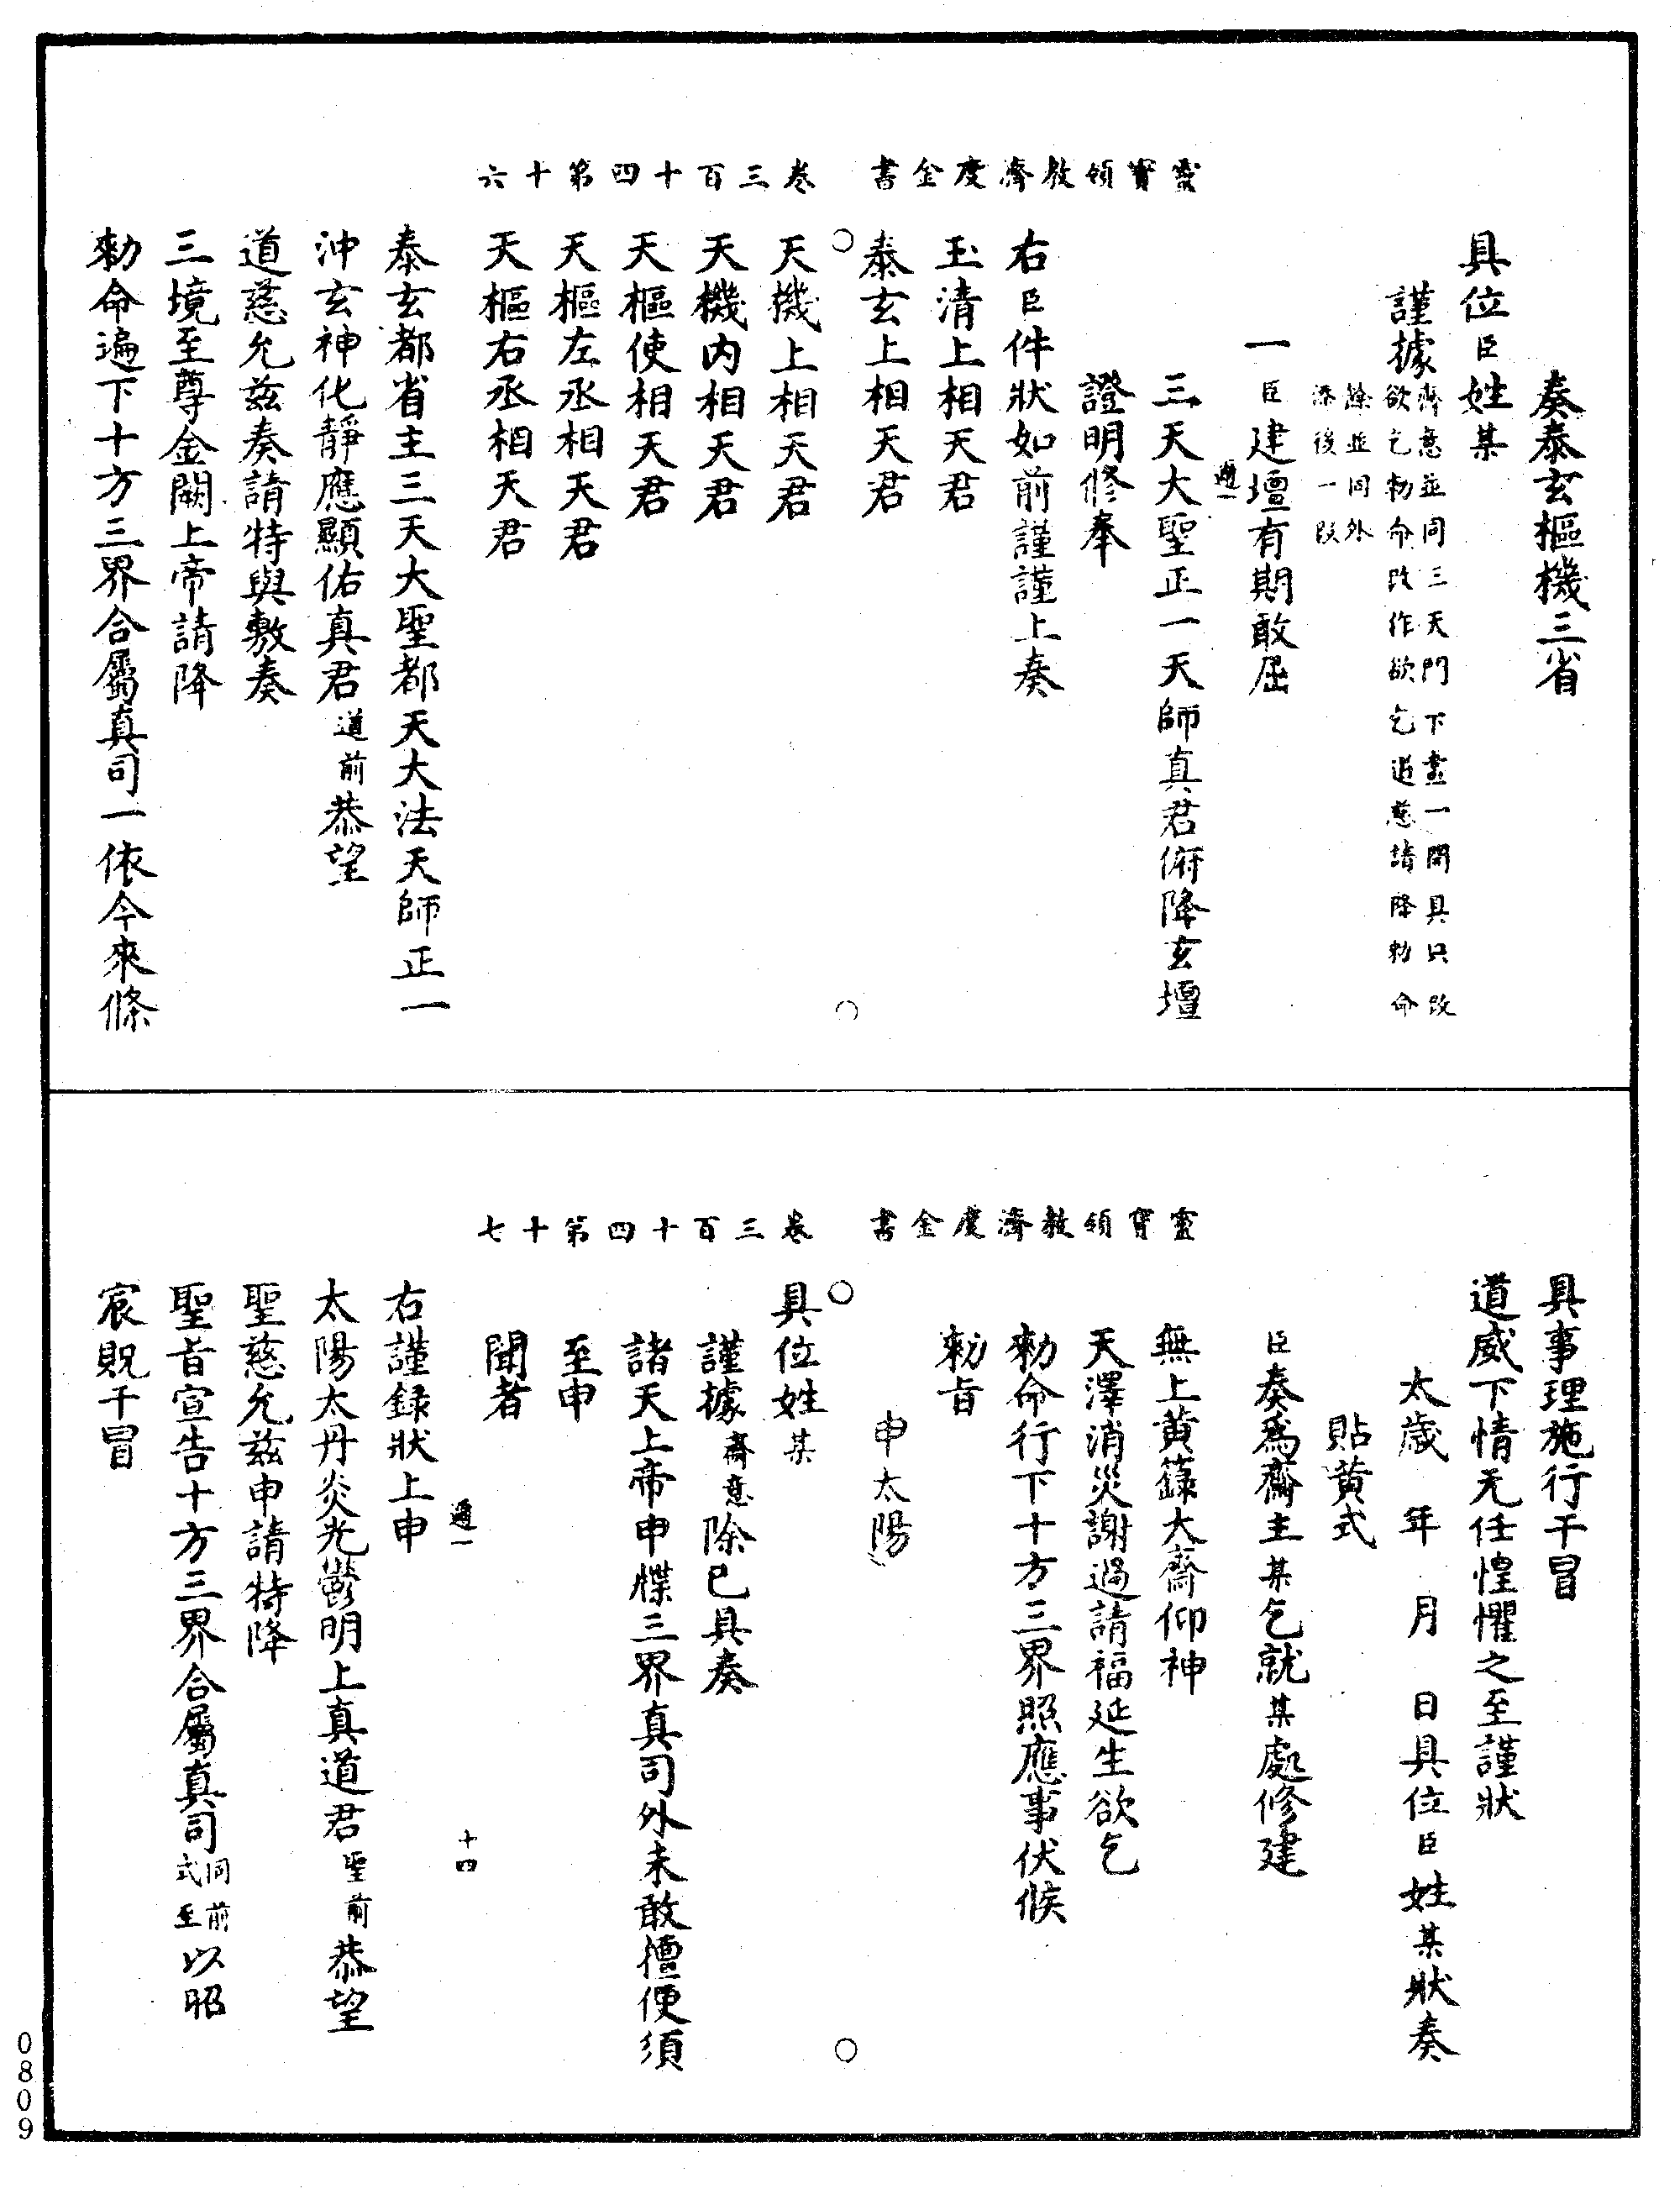 靈寶領教濟度金書
卷三百十四第十六
奏泰玄樞機三省
具位臣姓某
謹據齋意並同三天門下畫一開具只改
欲乞勑命改作欲乞道慈請降勑命
餘並同外
添後一段
一臣建壇有期敢屈
通一
三天大聖正一天師真君俯降玄壇
證明修奉
右臣件狀如前謹謹上奏
玉清上相天君
泰玄上相天君
天機上相天君
天機內相天君
天樞使相天君
天樞左丞相天君
天樞右丞相天君
泰玄都省主三天大聖都天大法天師正一
沖玄神化靜應顯佑真君道前恭望
道慈允茲奏請特與敷奏
三境至尊金闕上帝請降
勑命遍下十方三界合屬真司一依今來條
靈寶領教濟度金書
卷三百十四第十七
具事理施行干冒
道威下情无任惶懼之至謹狀
太歲 年 月 日具位臣姓某狀奏
貼黃式
臣奏為齋主某乞就某處修建
無上黃籙大齋仰神
天澤消災謝過請福延生欲乞
勑命行下十方三界照應事伏候
勑旨
申太陽
具位姓某
謹據齋意除已具奏
諸天上帝申牒三界真司外未敢擅便須
至申
聞者
通一
十四
右謹錄狀上申
太陽太丹炎光鬱明上真道君聖前恭望
聖慈允茲申請特降
聖旨宣告十方三界合屬真司同前式至以昭
宸貺干冒
0809